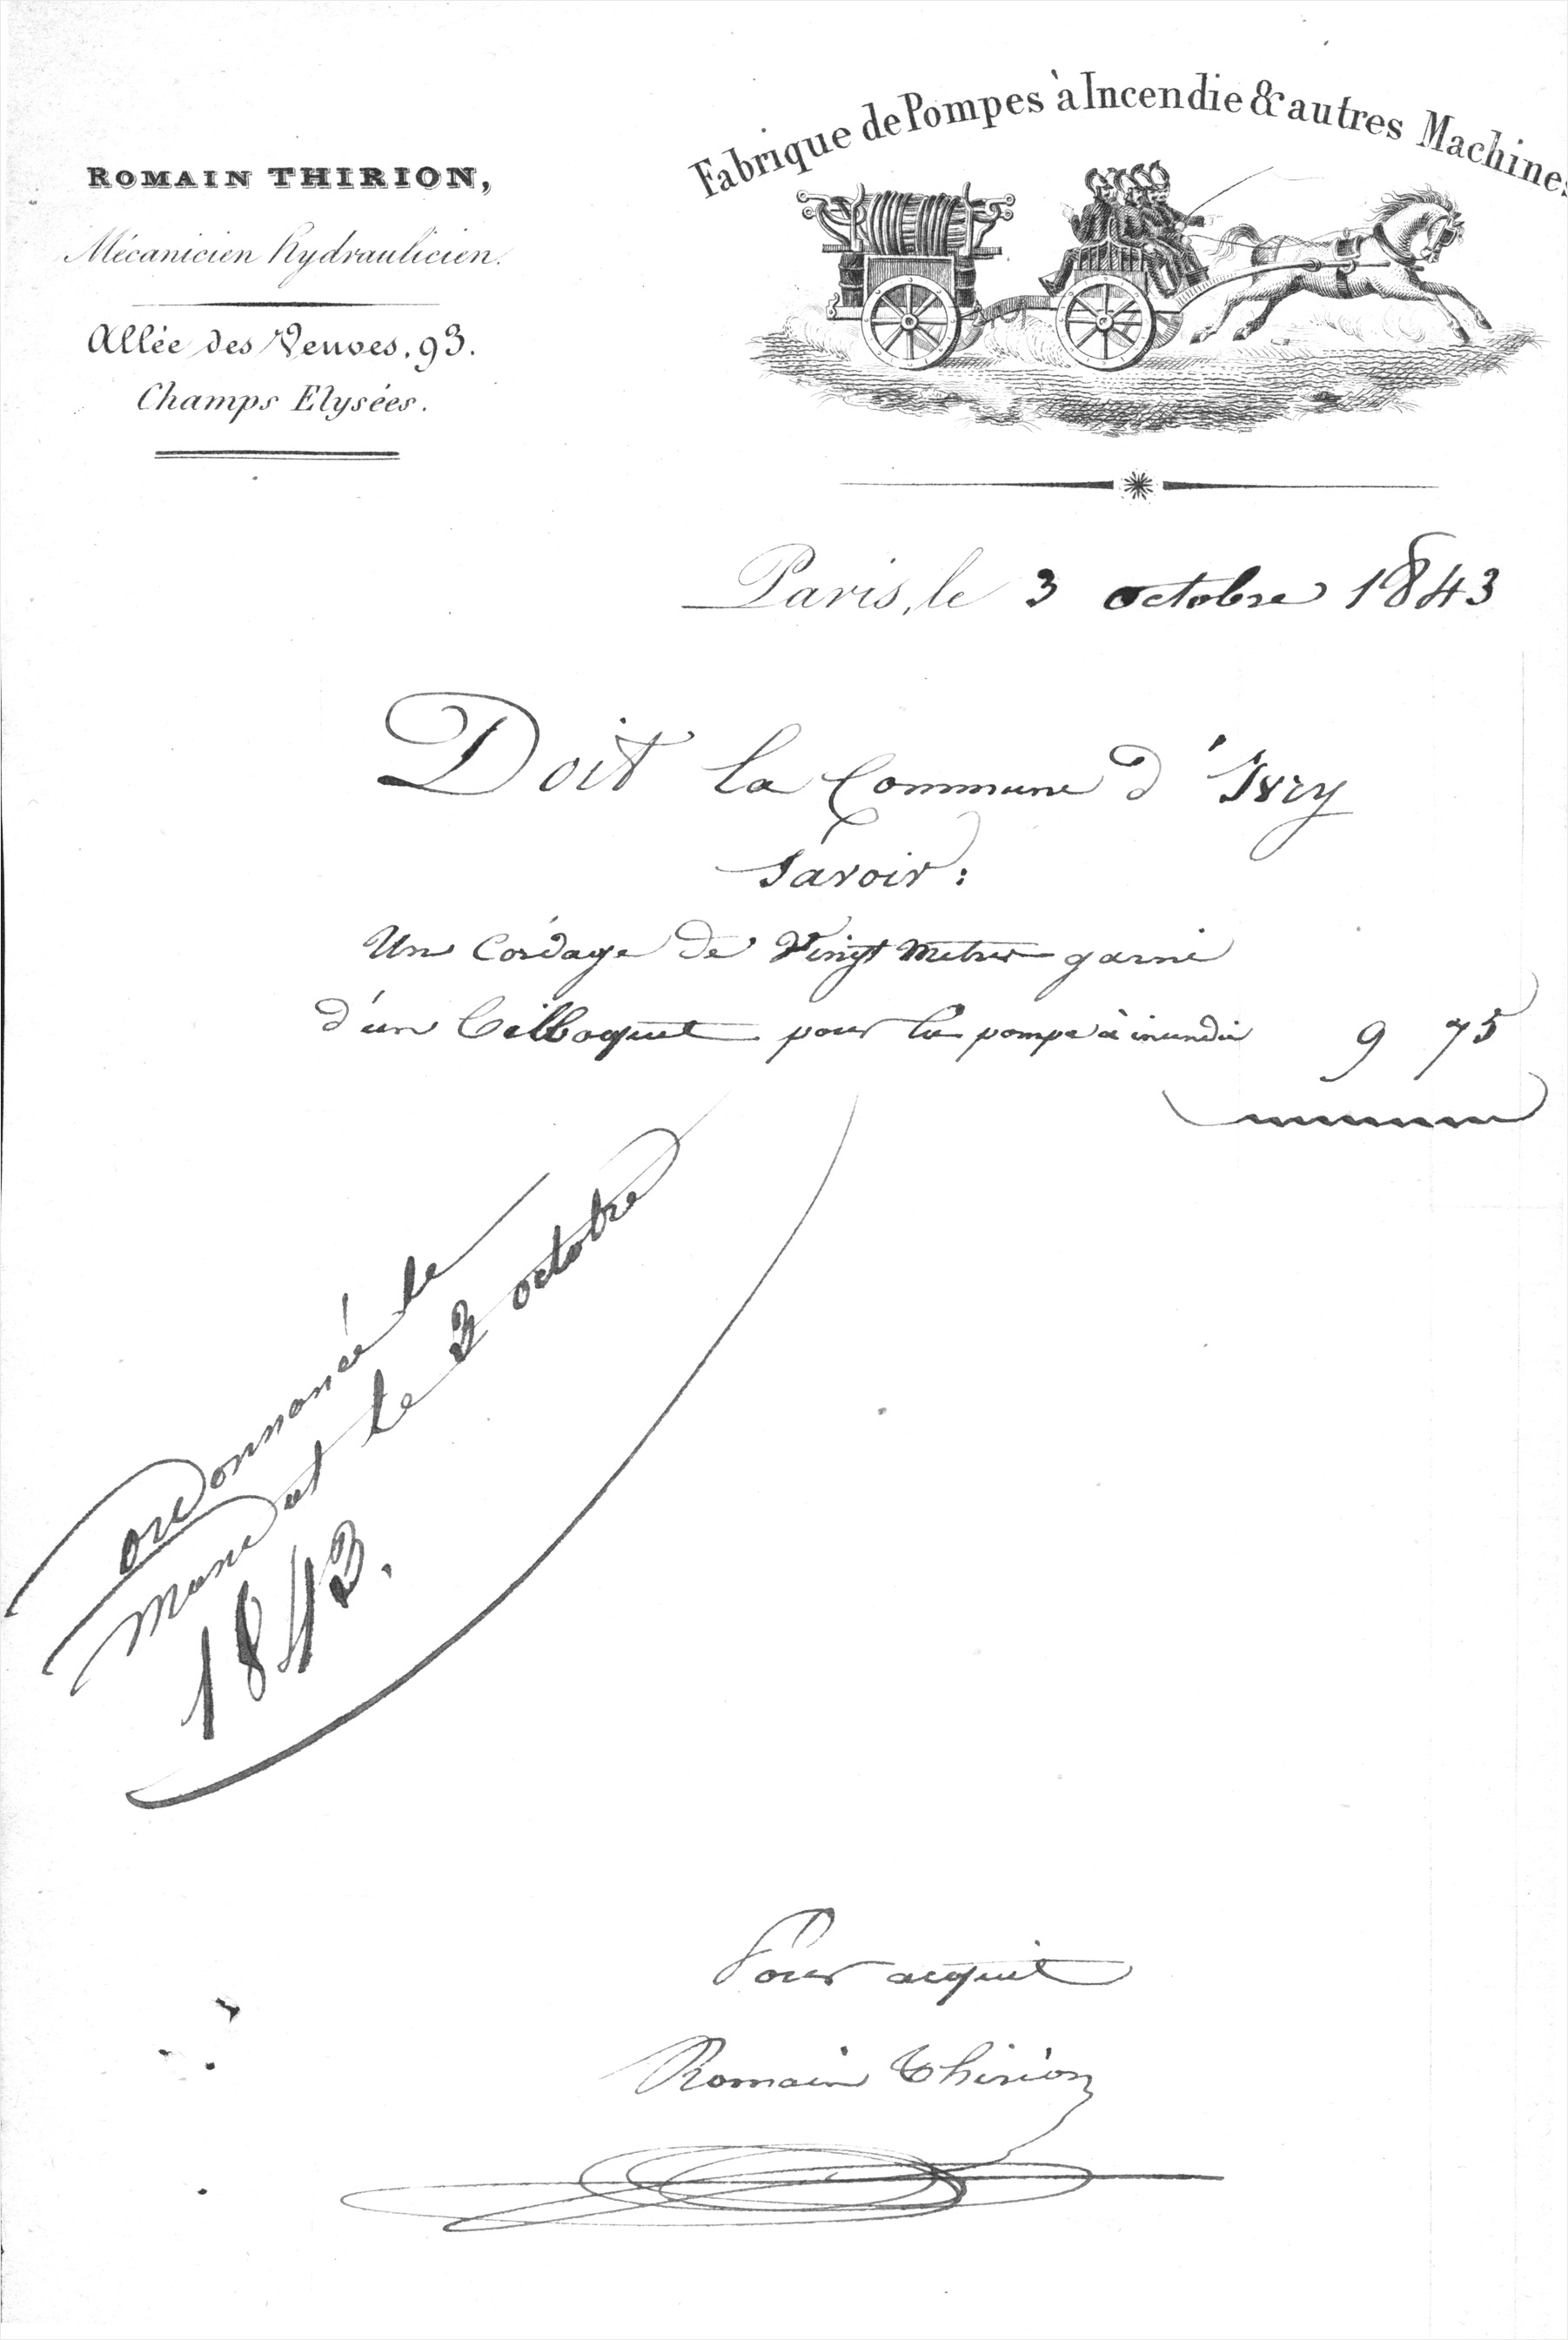 Fabrique de Pompes à Incendie & autres Machines
ROMAIN THIRION,
Mécanicien hydraulicien.
Allée des Veuves, 93.
Champs Elysées.
Paris, le 3 octobre 1843
Doit la Commune d'Ivry
Savoir:
Un Cordage de Vingt Metres garni
d'un Bilboquet pour la pompe à incendie 9 75
ordonnancé le
Mandat le 3 octobre
1843.
Pour acquit
Romain Thirion